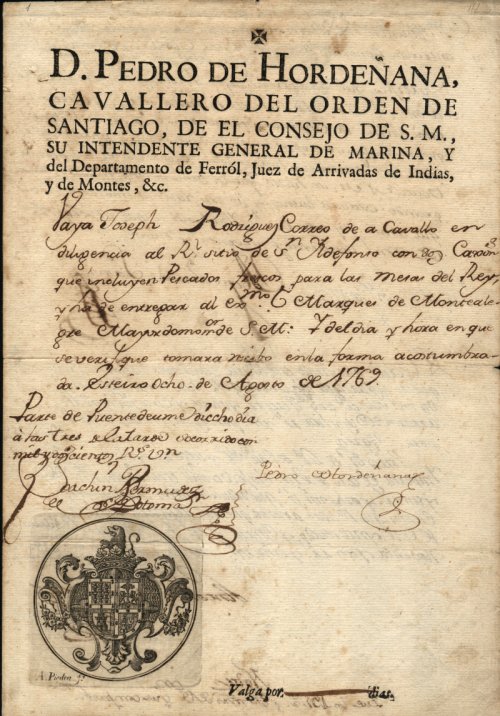 D. PEDRO DE HORDEÑANA,
CAVALLERO DEL ORDEN DE
SANTIAGO, DE EL CONSEJO DE S. M.,
SU INTENDENTE GENERAL DE MARINA, Y
del Departamento de Ferról, Juez de Arrivadas de Indias,
y de Montes, &c.
Vaya Joseph Rodriguez Correo de a Cavallo en
diligencia al Rl. sitio de Sn. Ildefonso con dos Caxon
que incluyen Pescados frescos para las mesas del Rey,
y ha de entregar al Exmo. Sr. Marques de Monteale-
gre Mayordomo mor. de S. M.: Y del dia y hora en que
se verifique tomara recibo en la forma acostumbra-
da. Esteiro Ocho de Agosto de 1769.
Parte de Puentedeume dicho dia
à las tres de la tarde socorrido con
mil y Rs. Vn
Pedro de Hordeñana
Joachin Bermudez
de
A. Piedra
Valga por dias.